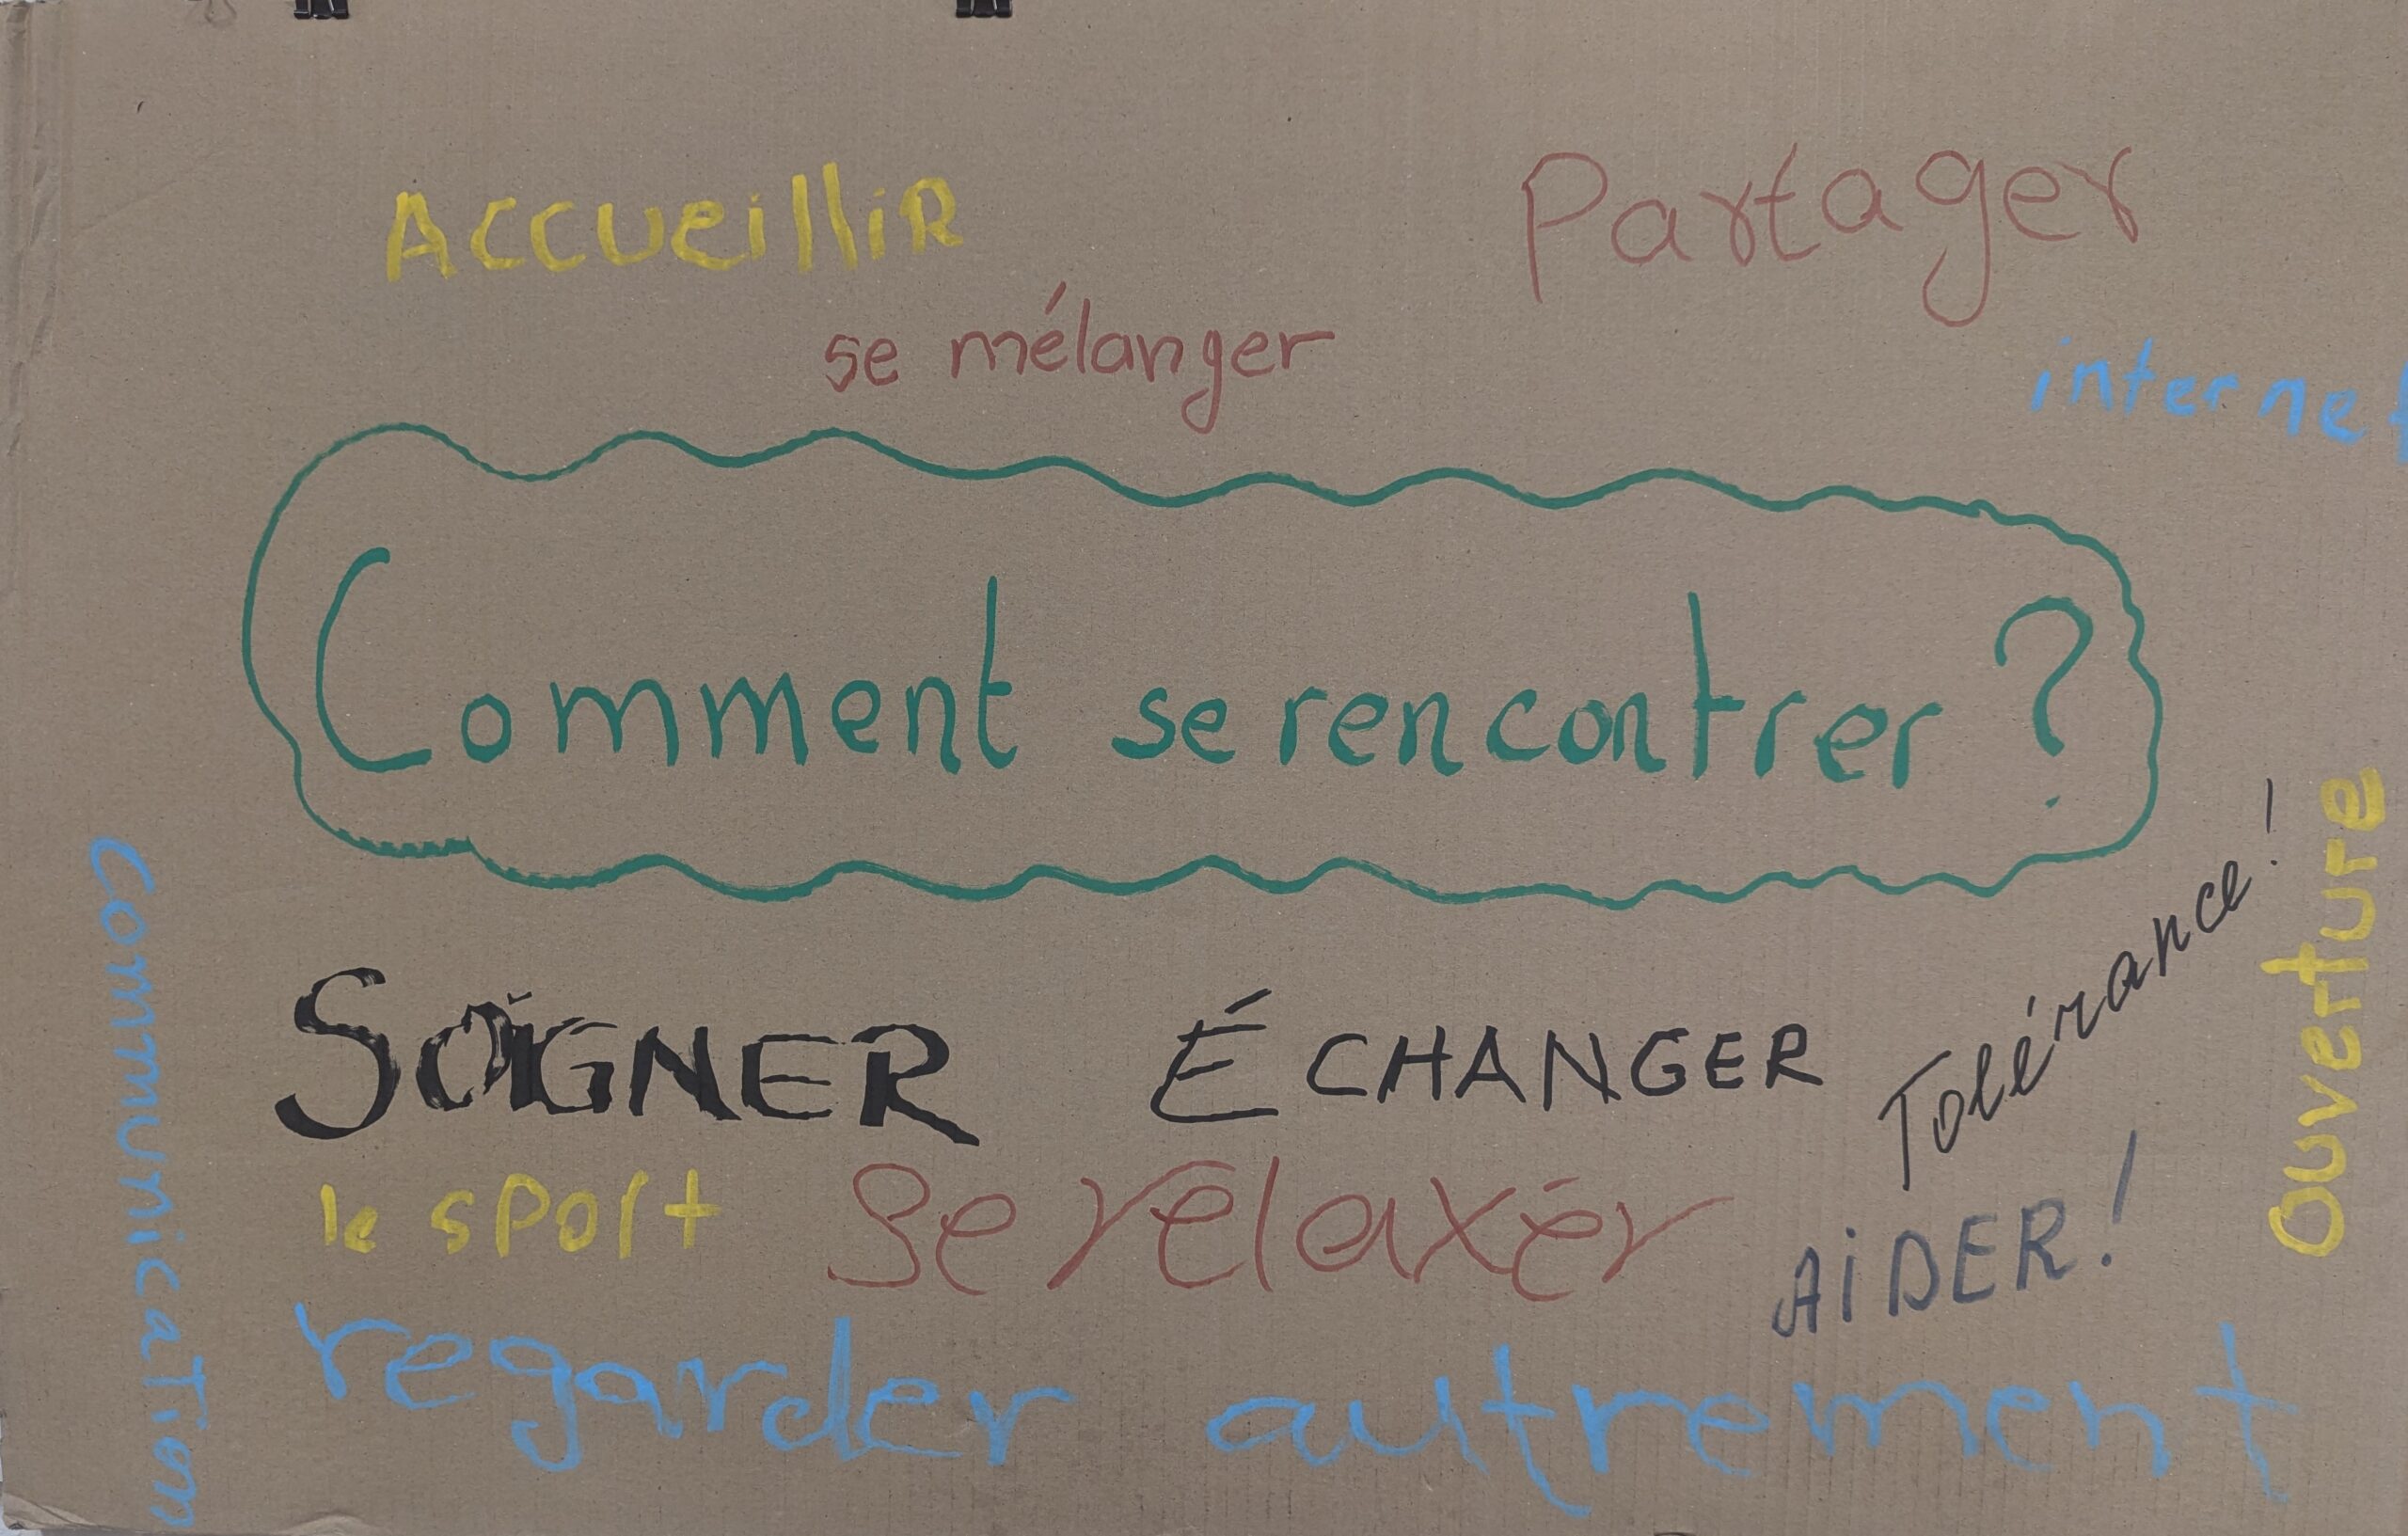 Accueillir
Partager
se mélanger
internet
Comment se rencontrer ?
Communication
SOIGNER
ÉCHANGER
Tolérance !
Ouverture
le sport
se rélaxér
AiDER !
regarder autrement